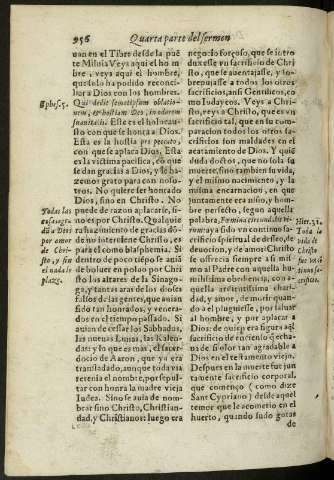 956 Quarta parte del sermon
uan en el Tibre desde la puē
te Miluia Veys aqui el hom
bre, veys aqui el hombre,
que solo ha podido reconci-
liar a Dios con los hombres.
Ephes.5. Qui dedit semetipsum oblatio-
nem, & hostiam Deo, in odorem
suauitatis. Este es el holocau
sto con que se honra a Dios.
Esta es la hostia pro peccato,
con que se aplaca Dios. Esta
es la victima pacifica, cō que
se dan gracias a Dios, y le ha
zemos grato para con noso-
tros. No quiere ser honrado
Dios, sino en Christo. No
Todas las puede de razon aplacarse, si-
no es por Christo. Qualquie
ra que diere gracias a Dios, dō
por amor de no interuiene Christo, es
para el como blasphemia. Si
dentro de poco tiēpo se auiā
de boluer en poluo por Chri
sto los altares de la Sinago-
ga, y tantas aras de los dioses
falsos de las gentes, que auian
sido tan honrados, y venera-
dos en el tiempo passado. Si
auian de cessar los Sabbados,
las nueuas Lunas, las Kalen-
das: y lo que es mas, el sacer-
docio de Aaron, que ya era
transladado, aunque toda via
retenia el nombre, por sepul-
tar con honra la madre vieja
Iudea. Sino se auia de nom-
brar sino Christo, Christian-
dad, y Christianos: luego era
nego: lo forçoso, que se intro
duxesse vn sacrificio de Chri
sto, que se auentajasse, y so-
brepujasse a todos los otros
sacrificios, ansi Gentilicos, co
mo Iudaycos. Veys a Chri-
sto, reys a Christo, que es vn
sacrificio tal, que en su compa-
raciō todos los otros sa-
crificios son maldades en el
acatamiento de Dios. Y quiē
duda doctos, que no sola su
muerte, sino tambien su vida,
y el mismo nacimiento, y la
misma encarnacion, en que
juntamente era niño, y hom-
bre perfeto, segun aquella
palabra, Femina circundabit vi-
rum: aya sido vn continuo sa-
crificio spiritual de desseo, de
deuocion, y de amor? Christo
se offrecia siempre a si mis-
mo al Padre con aquella hu-
millissima obediencia, con a-
quella ardentissima chari-
dad, y amor, de morir quan-
do a el pluguiesse, por saluar
al hombre, y por aplacar a
Dios: de quien era figura aq̄l
sacrificio de encienso, q̄ echa-
na de si olor tan agradable a
Dios en el testamento viejo.
Despues en la muerte fue jun
tamente sacrificio corporal,
que començo (como dize
Sant Cypriano) desde aquel
temor que le acometio en el
huerto, quando sudo gotas
de
Hier.31.
Toda la
vida de
Christo